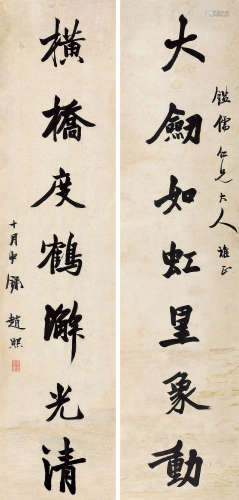 大劍如虹星象動
鑑儒仁兄大人雅正
橫橋度鶴澥光清
十月中
趙熙